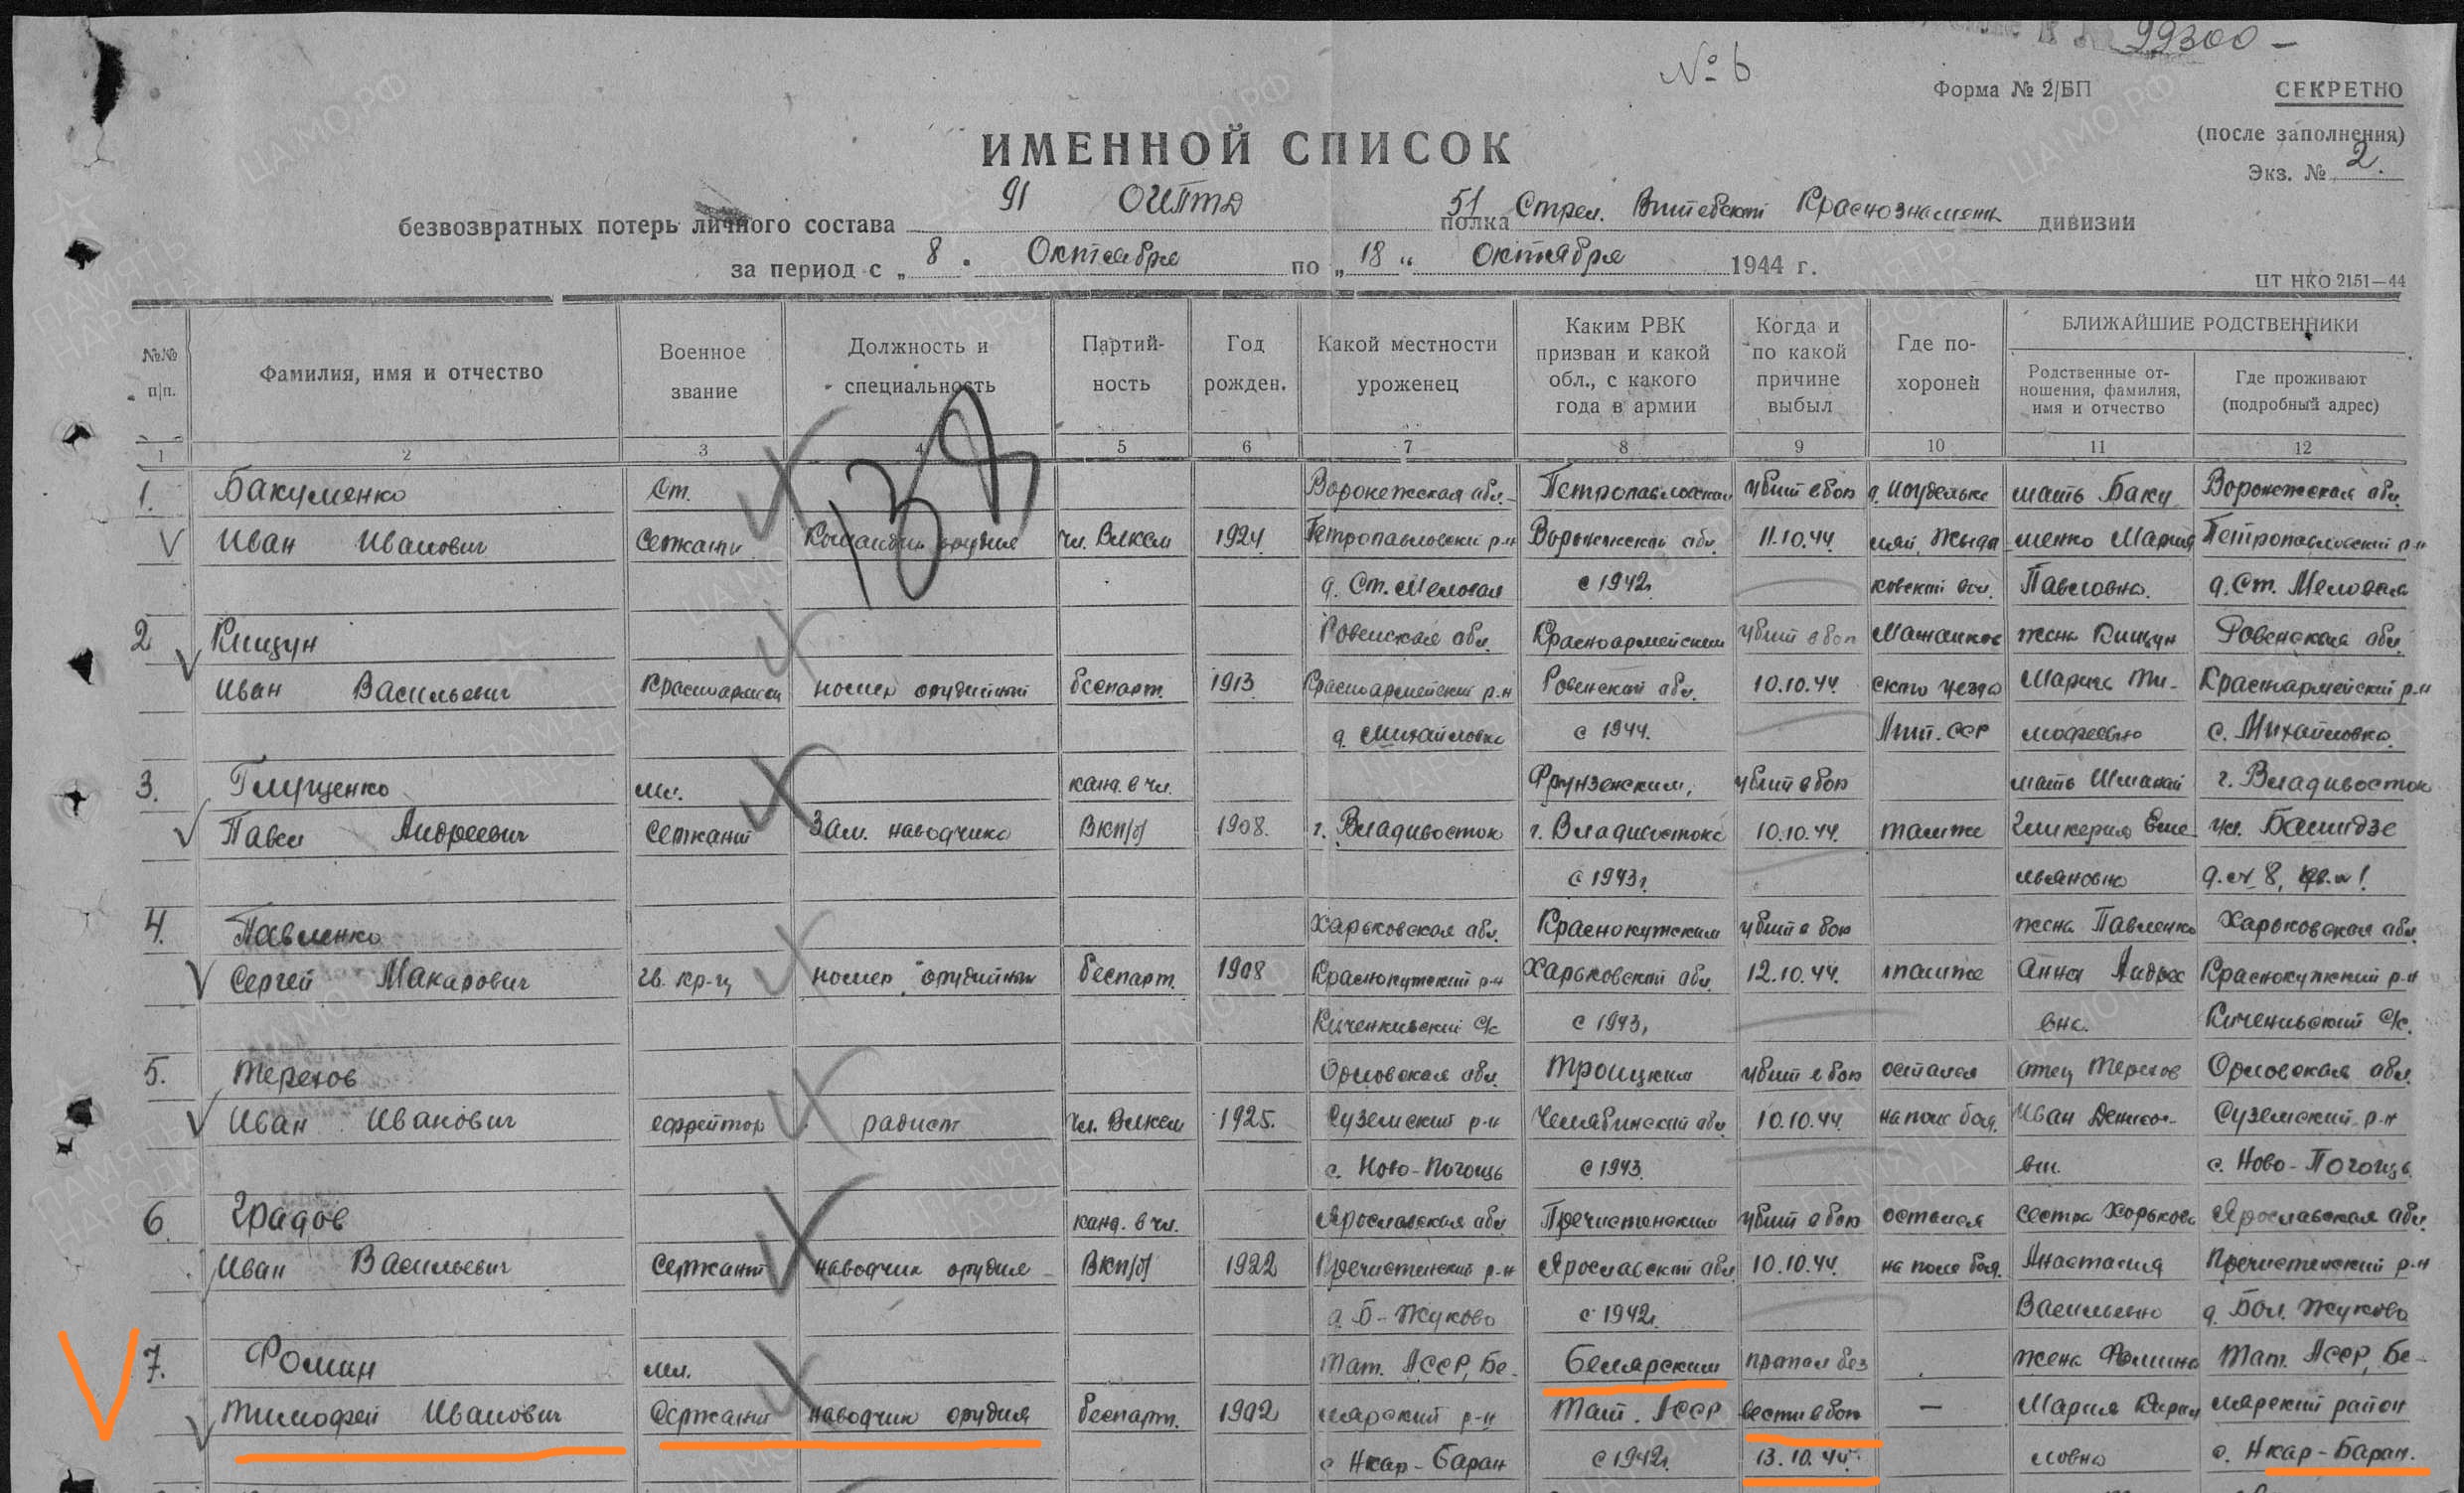 99300 -
№ 6
Форма № 2/БП
СЕКРЕТНО
(после заполнения)
Экз. № 2.
ИМЕННОЙ СПИСОК
безвозвратных потерь личного состава 91 ОИПТД 51 полка Стрел. Витебской Краснознамен. дивизии
за период с „ 8 " Октября по „ 18 " Октября 1944 г.
ЦТ НКО 2151—44
№№ п/п.
Фамилия, имя и отчество
Военное звание
Должность и специальность
Партий-ность
Год рожден.
Какой местности уроженец
Каким РВК призван и какой обл., с какого года в армии
Когда и по какой причине выбыл
Где по-хоронен
БЛИЖАЙШИЕ РОДСТВЕННИКИ
Родственные от-ношения, фамилия, имя и отчество
Где проживают (подробный адрес)
1 2 3 4 5 6 7 8 9 10 11 12
138
1. Бакуменко Ст. Воронежская обл. Петропавловским убит в бою мать Баку Воронежская обл.
Иван Иванович Сержант Командир орудия чл. Влксм 1924 Петропавловский р-н Воронежской обл. 11.10.44. менко Мария Петропавловский р-н
д. Ст. Меловая с 1942г. Павловна. д. Ст. Меловая
2 Кищун Ровенская обл. Красноармейским убит в бою жена Кищун Ровенская обл.
Иван Васильевич Красноармеец номер орудийный беспарт. 1913 Красноармейский р-н Ровенской обл. 10.10.44. ского уезда Мария Ти-Красноармейский р-н
д. Михайловка с 1944. Лит. ССР мофеевна с. Михайловка.
3. Глущенко мл. канд. в чл. Фрунзенским, убит в бою мать г. Владивосток
Павел Андреевич Сержант Зам. наводчика ВКП/б/ 1908. г. Владивосток г. Владивостока 10.10.44. там же Гликерия Еме ул.
с 1943г. льяновна д. № 8, кв. № 1.
4. Павленко Харьковская обл. Краснокутским убит в бою жена Павленко Харьковская обл.
Сергей Макарович гв. кр-ц номер орудийный беспарт. 1908 Краснокутский р-н Харьковской обл. 12.10.44. там же Анна Андрее Краснокутский р-н
с/с с 1943г. вна. с/с.
5. Терехов Орловская обл. Троицким убит в бою остался отец Терехов Орловская обл.
Иван Иванович ефрейтор радист чл. Влксм 1925. Суземский р-н Челябинской обл. 10.10.44. на поле боя. Иван Суземский р-н
с. Ново-Погощь с 1943. вич. с. Ново-Погощь
6. Градов канд. в чл. Ярославская обл. Пречистенским убит в бою остался сестра Хорькова Ярославская обл.
Иван Васильевич Сержант наводчик орудия ВКП/б/ 1922 Пречистенский р-н Ярославской обл. 10.10.44. на поле боя. Анастасия Пречистенский р-н
д. Б-Жуково с 1942г. Васильевна д. Бол. Жуково
7. Фомин мл. Тат. АССР, Би- Билярским пропал без жена Фомина Тат. АССР, Би-
Тимофей Иванович Сержант наводчик орудия беспарт. 1902 лярский р-н Тат. АССР вести в бою — Мария Кирил лярский район
с Нкар-Баран с 1942г. 13.10.44. ловна с. Нкар-Баран.